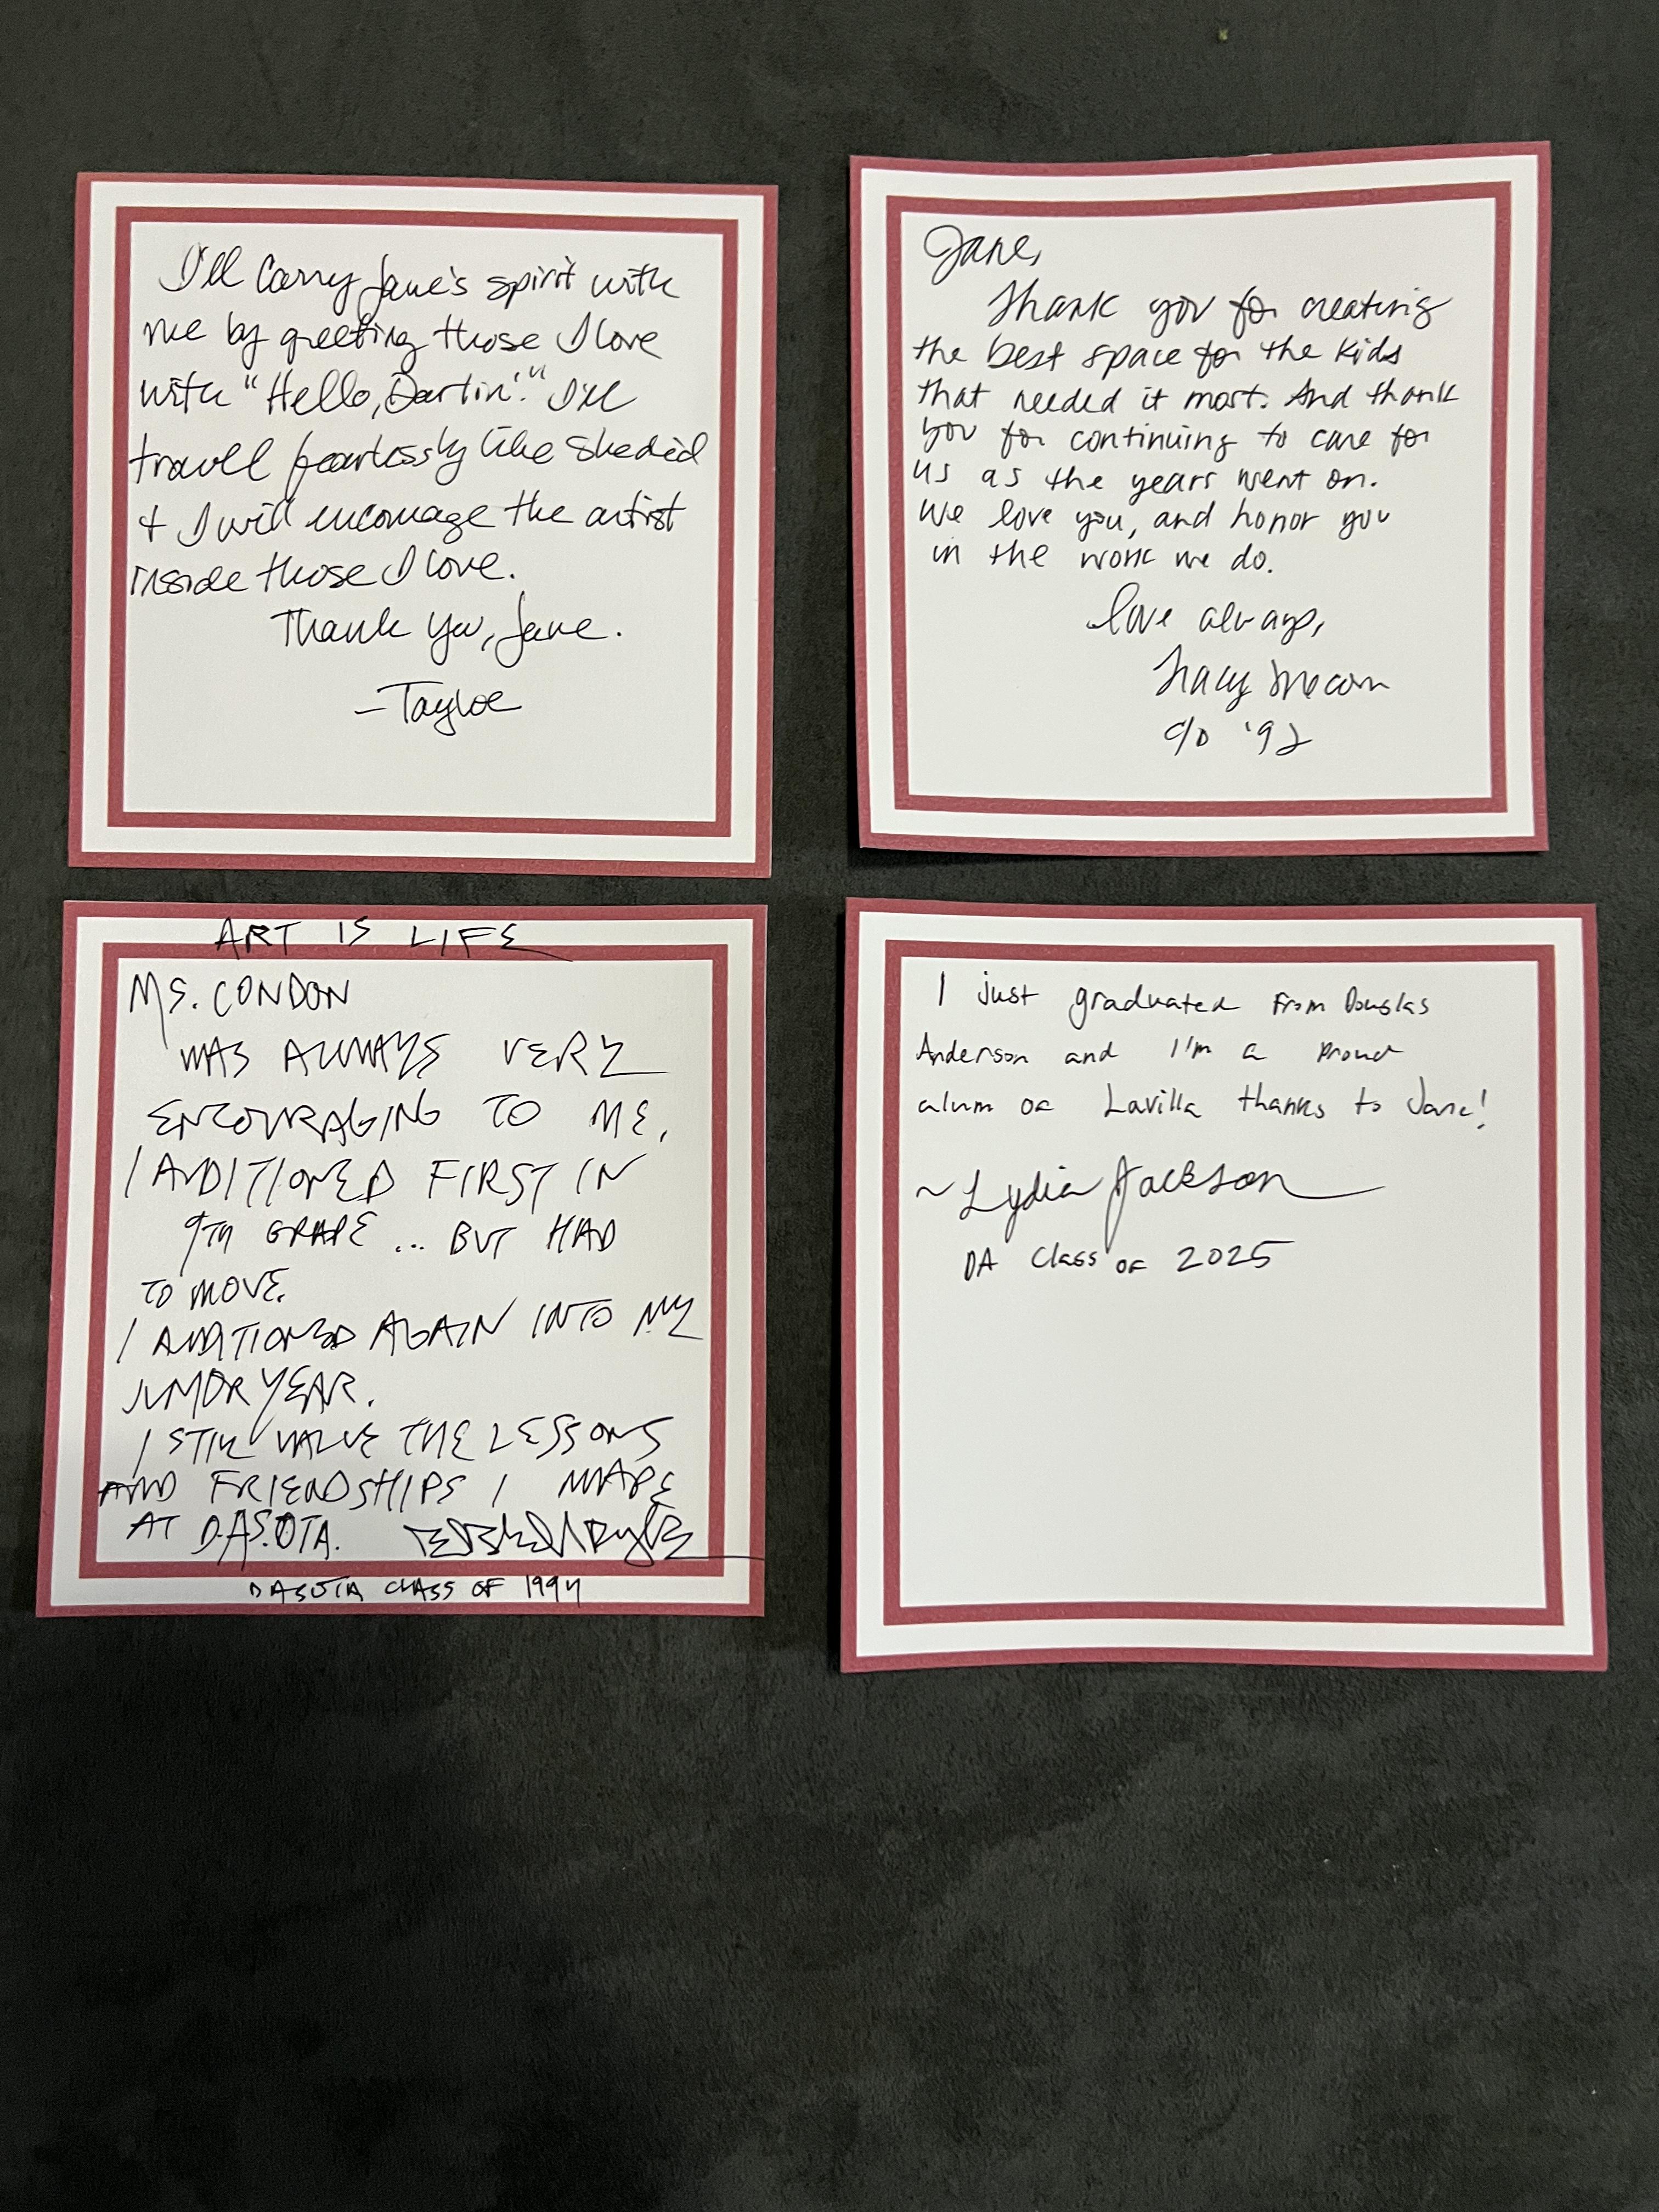 I'll carry Jane's spirit with
me by greeting those I love
with "Hello, Dartin'." I'll
travel fearlessly like she did
+ I will encourage the artist
inside those I love.
Thank you, Jane.
- Tayloe
Jane,
Thank you for creating
the best space for the kids
that needed it most. And thank
you for continuing to care for
us as the years went on.
We love you, and honor you
in the work we do.
love always,
Tracy
c/o '92
ART IS LIFE
MS. CONDON
WAS ALWAYS VERY
ENCOURAGING TO ME.
I AUDITIONED FIRST IN
9TH GRADE ... BUT HAD
TO MOVE.
I AUDITIONED AGAIN INTO MY
JUNIOR YEAR.
I STILL VALUE THE LESSONS
AND FRIENDSHIPS I MADE
AT D.A.S.OTA.
DASOTA CLASS OF 1994
I just graduated from Douglas
Anderson and I'm a proud
alum of Lavilla thanks to Jane!
~ Lydia Jackson
DA Class of 2025